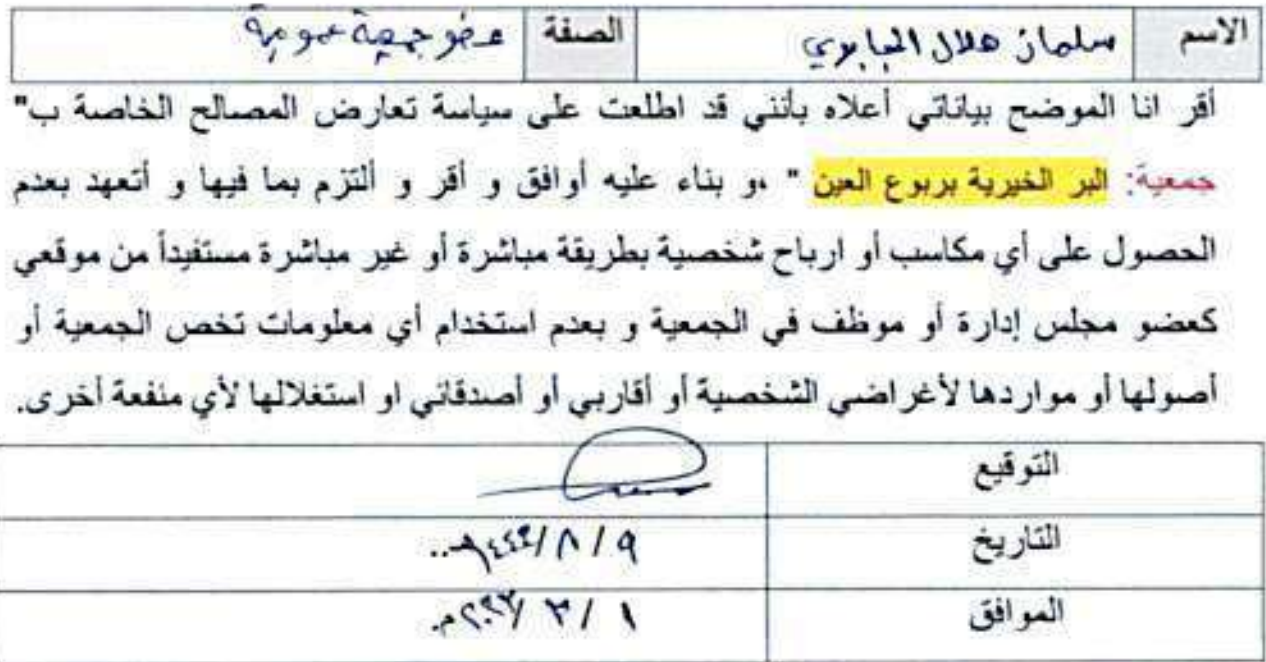 الاسم سلمان هلال الجابري الصفة عضو جمعية عمومية
أقر انا الموضح بياناتي أعلاه بأنني قد اطلعت على سياسة تعارض المصالح الخاصة ب"
جمعية: البر الخيرية بربوع العين " ،و بناء عليه أوافق و أقر و ألتزم بما فيها و أتعهد بعدم
الحصول على أي مكاسب أو ارباح شخصية بطريقة مباشرة أو غير مباشرة مستفيداً من موقعي
كعضو مجلس إدارة أو موظف في الجمعية و بعدم استخدام أي معلومات تخص الجمعية أو
أصولها أو مواردها لأغراضي الشخصية أو أقاربي أو أصدقائي او استغلالها لأي منفعة أخرى.
التوقيع
التاريخ ٩ / ٨ /
الموافق ١ / ٣ / م.